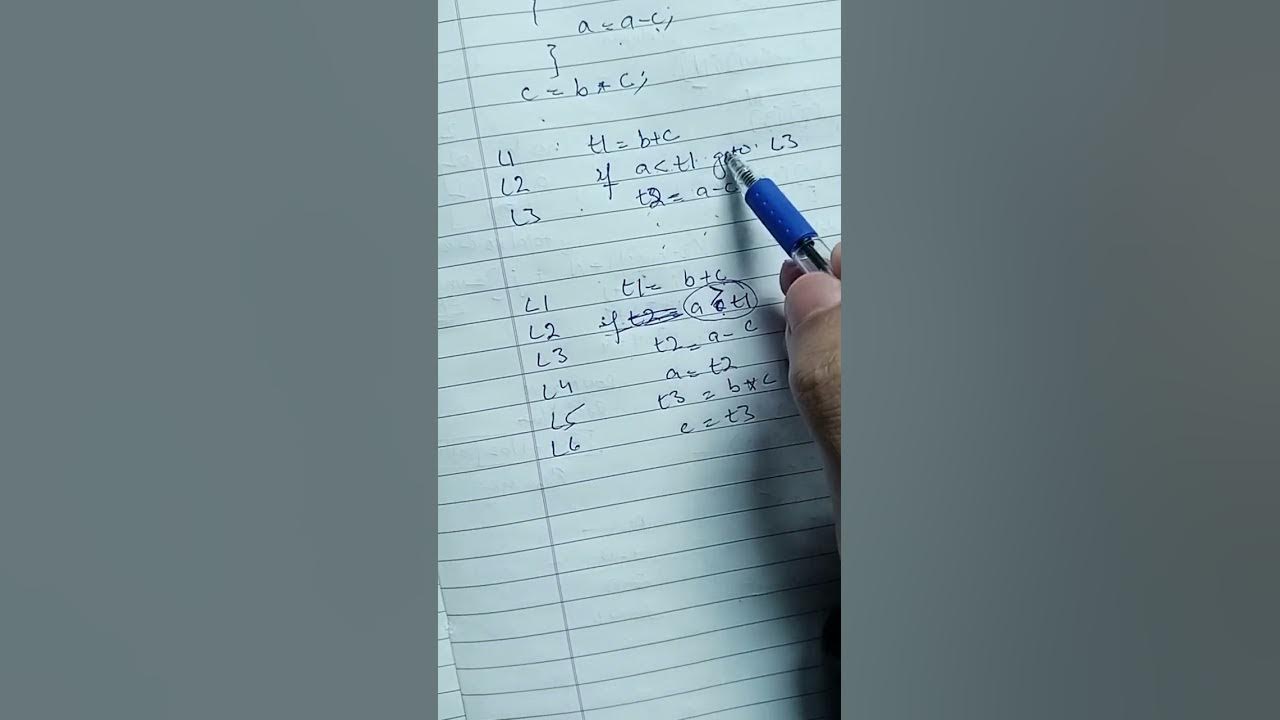 }
a = a-c;
}
c = b * c;
L1 t1 = b+c
L2 if a < t1 goto L3
L3 t2 = a-c
L1 t1 = b+c
L2 if a > t1
L3 t2 = a-c
L4 a = t2
L5 t3 = b*c
L6 c = t3